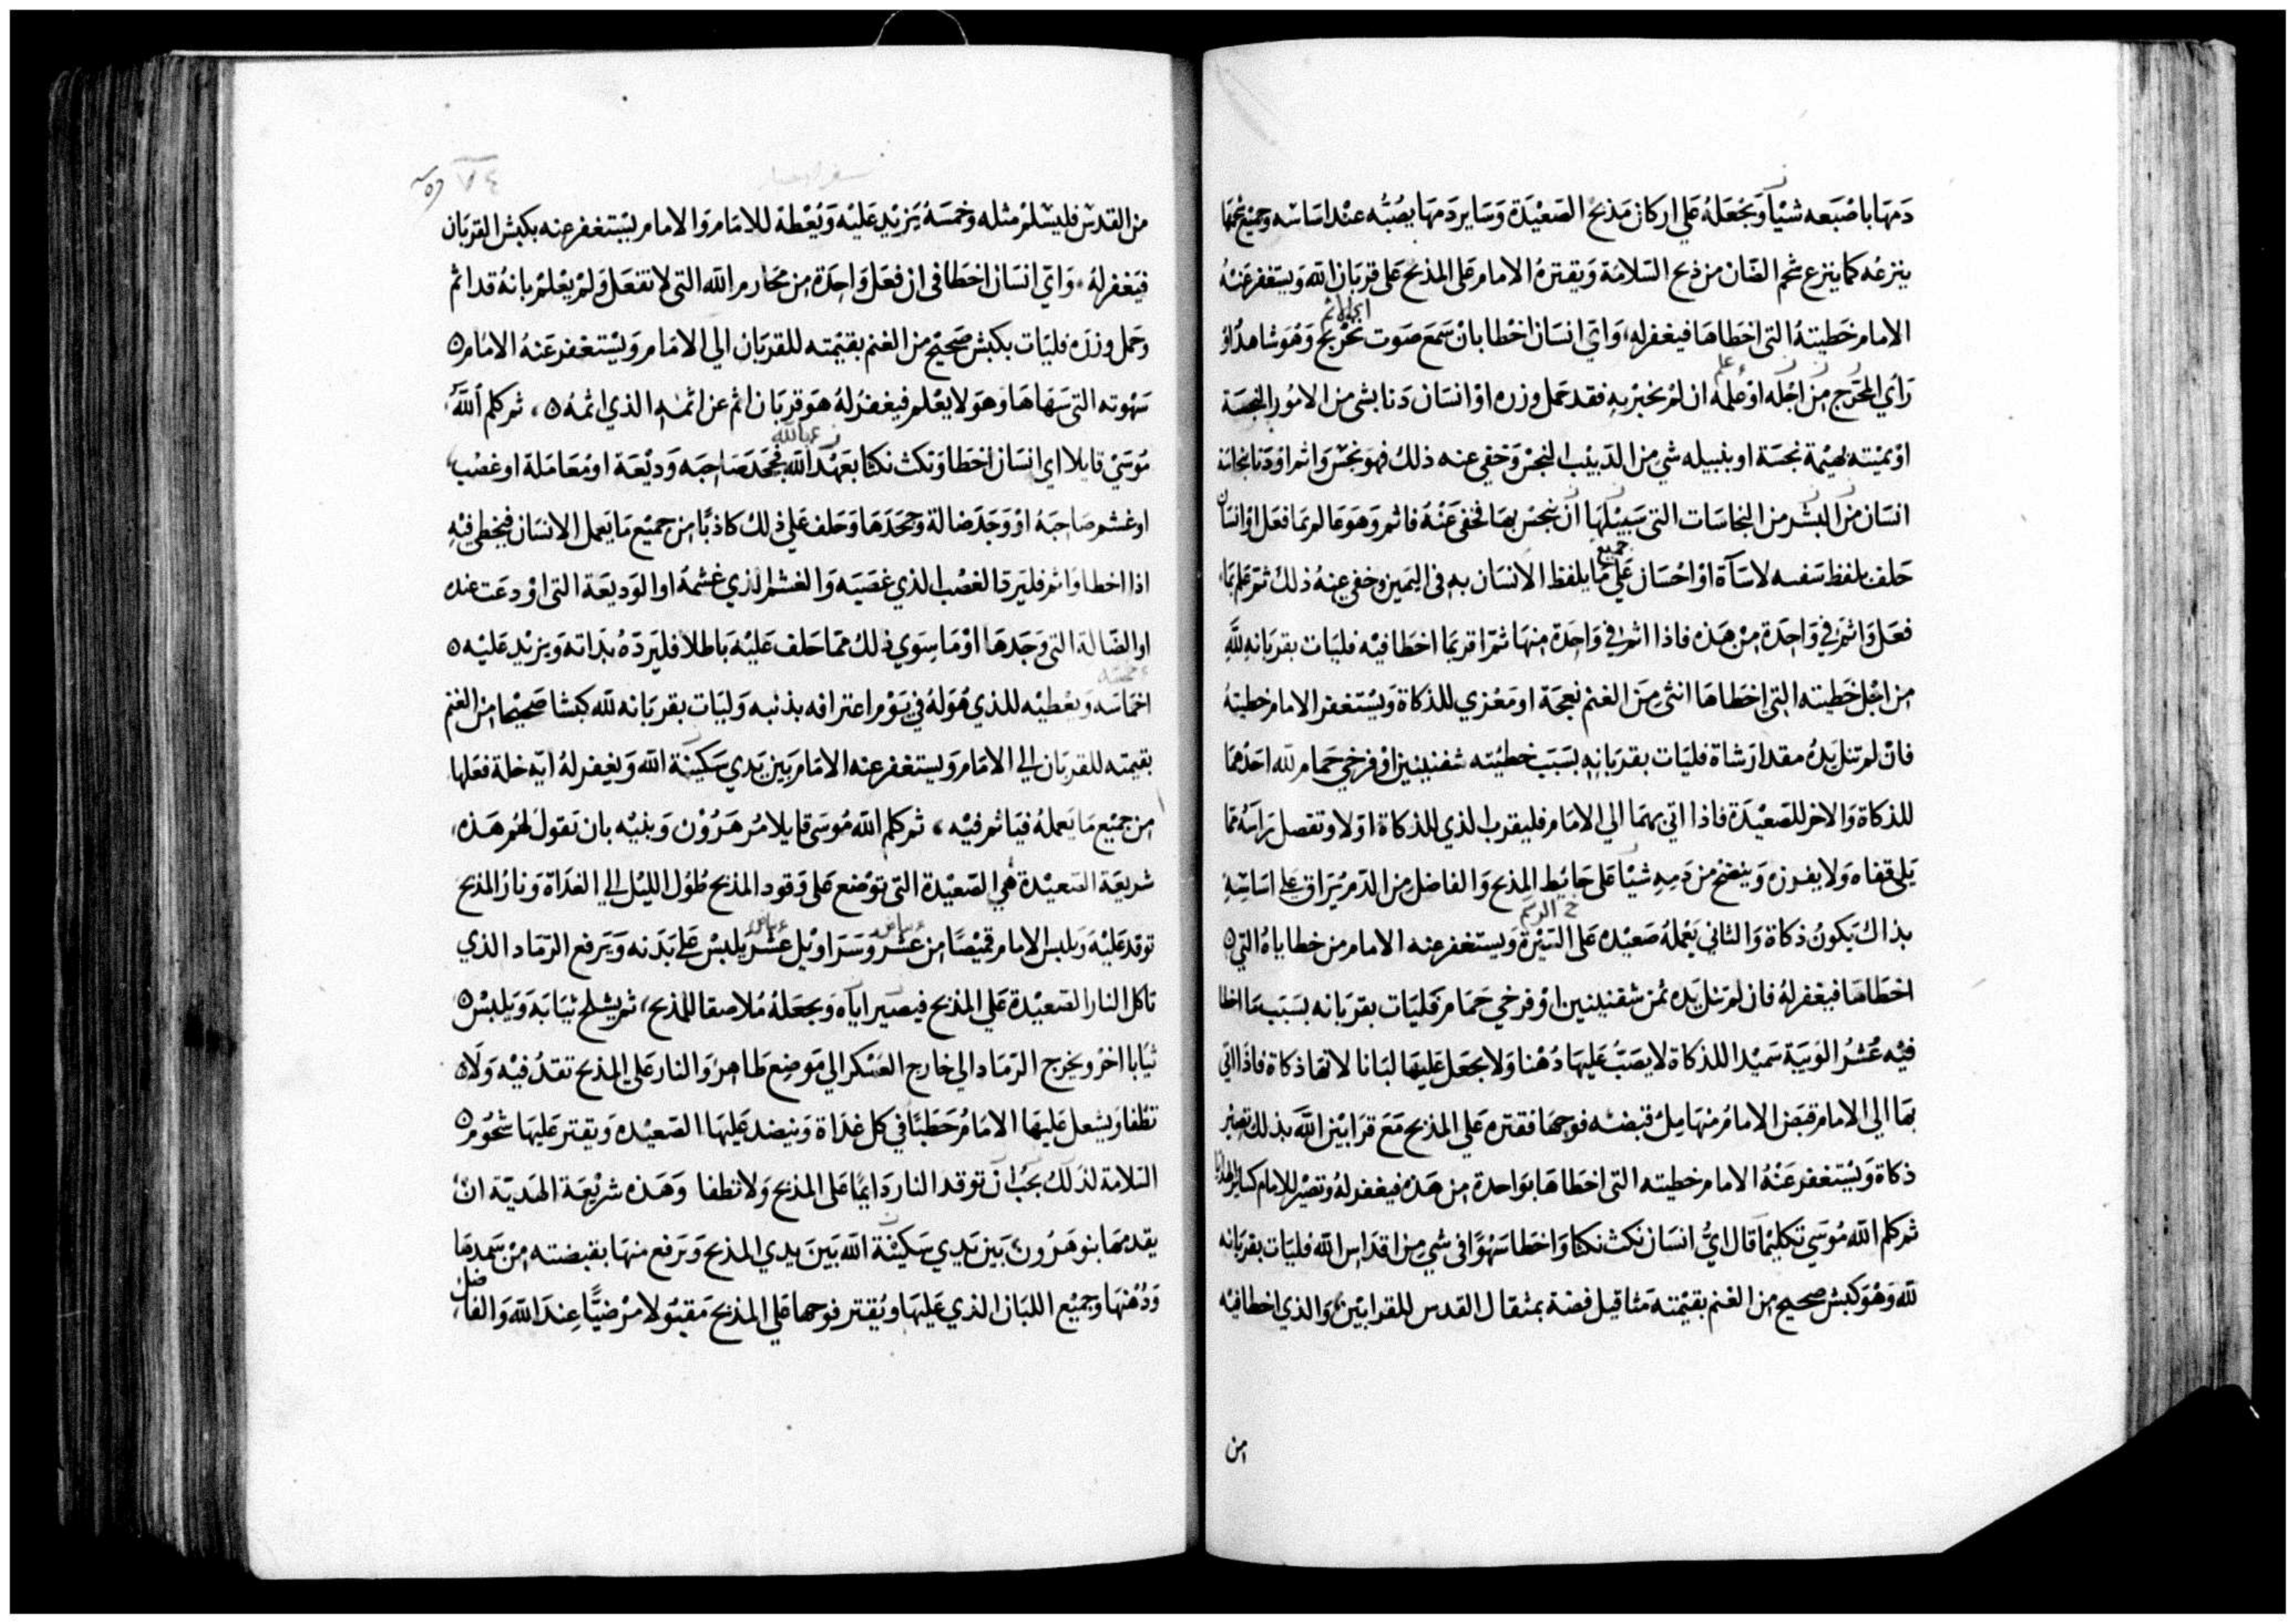 دمها باصبعه شيا ويجعله علي اركان مذبح الصعيدة وساير دمها يصبه عند اساسه وجميع شحمها
ينزعه كما ينزع شحم الضان من ذبح السلامة ويقتره الامام علي المذبح علي قربان الله ويستغفر عنه
الامام خطيته التي اخطاها فيغفر له، واي انسان اخطا بان سمع صوت تحريج وهو شاهد او
راي المحرج من اجله او علمه ان لم يخبر به فقد حمل وزره او انسان دنا بشي من الامور النجسة
او بميته بهيمة نجسة او بنبيله شي من الدبيب النجس وخفي عنه ذلك فهو نجس واثم او دنا بنجاسة
انسان من البشر من النجاسات التي سبيلها ان ينجس بها فخفي عنه فاثم وهو عالم بما فعل او انسان
حلف بلفظ نفسه لاساة او احسان علي جميع ما يلفظ الانسان به في اليمين وخفي عنه ذلك ثم علم بما
فعل واثم في واحدة من هذه فاذا اثم في واحدة منها ثم اقر بما اخطا فيه فليات بقربانه لله
من اجل خطيته التي اخطاها انثي من الغنم نعجة او معزي للذكاة ويستغفر الامام خطيته
فان لم تنل يده مقدار شاة فليات بقربانه بسبب خطيته شفنينين او فرخي حمام لله احدهما
للذكاة والاخر للصعيدة فاذا اتي بهما الي الامام فليقرب الذي للذكاة اولا وتفصل راسه مما
يلي قفاه ولا يفرزه وينضح من دمه شيا علي حائط المذبح والفاضل من الدم يراق علي اساسه
بذاك يكون ذكاة والثاني يعمله صعيده علي السيرة ويستغفر عنه الامام من خطاياه التي
اخطاها فيغفر له فان لم تنل يده ثمن شفنينين او فرخي حمام فليات بقربانه بسبب ما اخطا
فيه عشر الويبة سميدا للذكاة لا يصب عليها دهنا ولا يجعل عليها لبانا لانها ذكاة فاذا اتي
بها الي الامام قبض الامام منها مل قبضته فوحها فقتره علي المذبح مع قرابين الله بذلك تصير
ذكاة ويستغفر عنه الامام خطيته التي اخطاها بواحدة من هذه فيغفر له وتصير للامام كساير الهدايا
ثم كلم الله موسي تكليما قال اي انسان نكث نكثا واخطا سهوا في شي من اقداس الله فليات بقربانه
لله وهو كبش صحيح من الغنم بقيمته مثاقيل فضة بمثقال القدس للقرابين والذي اخطا فيه
من
٧٤
من القدس فليسلم مثله وخمسة يزيد عليه ويعطه للامام والامام يستغفر عنه بكبش القربان
فيغفر له، واي انسان اخطا في ان فعل واحدة من محارم الله التي لا تفعل ولم يعلم بانه قد اثم
وحمل وزره فليات بكبش صحيح من الغنم بقيمته للقربان الي الامام ويستغفر عنه الامام
سهوته التي سهاها وهو لا يعلم فيغفر له هو قربان اثم عن اثمه الذي اثمه، ثم كلم الله
موسي قايلا اي انسان اخطا ونكث نكثا بعهد الله فجحد صاحبه وديعة او معاملة او غصب
او غشم صاحبه او وجد ضالة وجحدها وحلف علي ذلك كاذبا من جميع ما يعمل الانسان فيخطي فيه
اذا اخطا واثم فليرد الغصب الذي غصبه والغشم الذي غشمه او الوديعة التي اودعت عنده
او الضالة التي وجدها او ما سوي ذلك مما حلف عليه باطلا فليرده بذاته ويزيد عليه
اخماسه ويعطيه للذي هو له في يوم اعترافه بذنبه وليات بقربانه لله كبشا صحيحا من الغنم
بقيمته للقربان الي الامام ويستغفر عنه الامام بين يدي سكينة الله ويغفر له اية خلة فعلها
من جميع ما يعمله فياثم فيه، ثم كلم الله موسي قايلا مر هرون وبنيه بان تقول لهم هذه
شريعة الصعيدة هي الصعيدة التي توضع علي وقود المذبح طول الليل الي الغداة ونار المذبح
توقد عليه ويلبس الامام قميصا من عشر وسراويل عشر يلبس علي بدنه ويرفع الرماد الذي
تاكل النار الصعيدة علي المذبح فيصير اياه ويجعله ملاصقا للمذبح، ثم يشلح ثيابه ويلبس
ثيابا اخر ويخرج الرماد الي خارج العسكر الي موضع طاهر والنار علي المذبح تقد فيه ولا
تطفا ويشعل عليها الامام حطبا في كل غداة وينضد عليها الصعيده ويقتر عليها شحوم
السلامة لذلك يجب ان توقد النار دايما علي المذبح ولا تطفا وهذه شريعة الهدية ان
يقدمها بنو هرون بين يدي سكينة الله بين يدي المذبح ويرفع منها بقبضته من سميدها
ودهنها وجميع اللبان الذي عليها ويقتر فوحها علي المذبح مقبولا مرضيا عند الله والفاضل